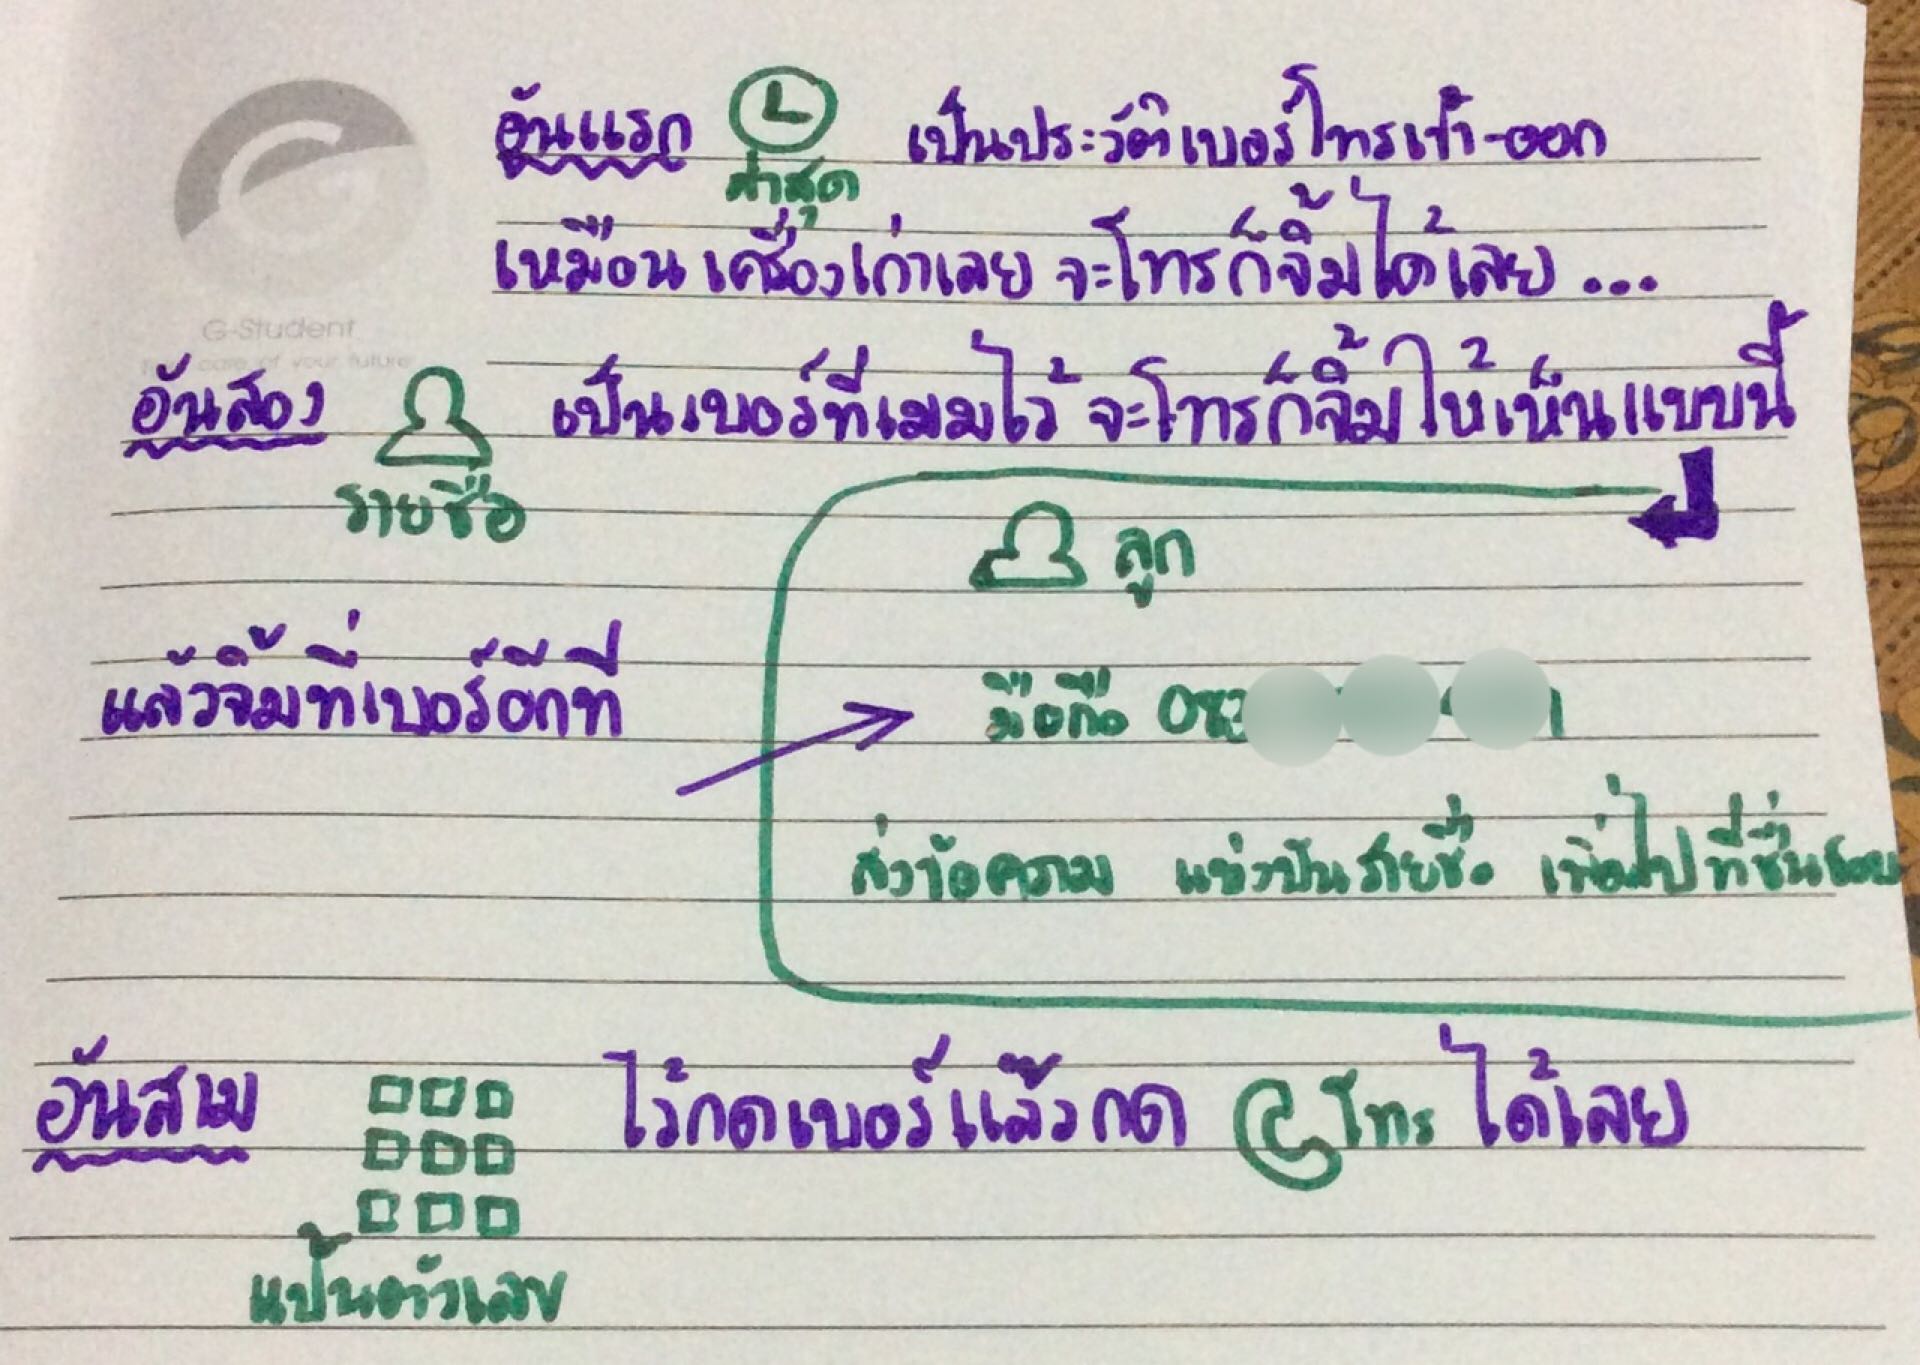 อันแรก เป็นประวัติเบอร์โทรเข้า-ออก
ล่าสุด
เหมือนเครื่องเก่าเลย จะโทรก็จิ้มได้เลย ...
G-Student
care of your future
อันสอง เป็นเบอร์ที่เมมไว้ จะโทรก็จิ้มให้เห็นแบบนี้
รายชื่อ
ลูก
แล้วจิ้มที่เบอร์อีกที
มือถือ 083
ส่งข้อความ แบ่งปันรายชื่อ เพิ่มไปที่ชื่นชอบ
อันสาม ไว้กดเบอร์แล้วกด โทร ได้เลย
แป้นตัวเลข